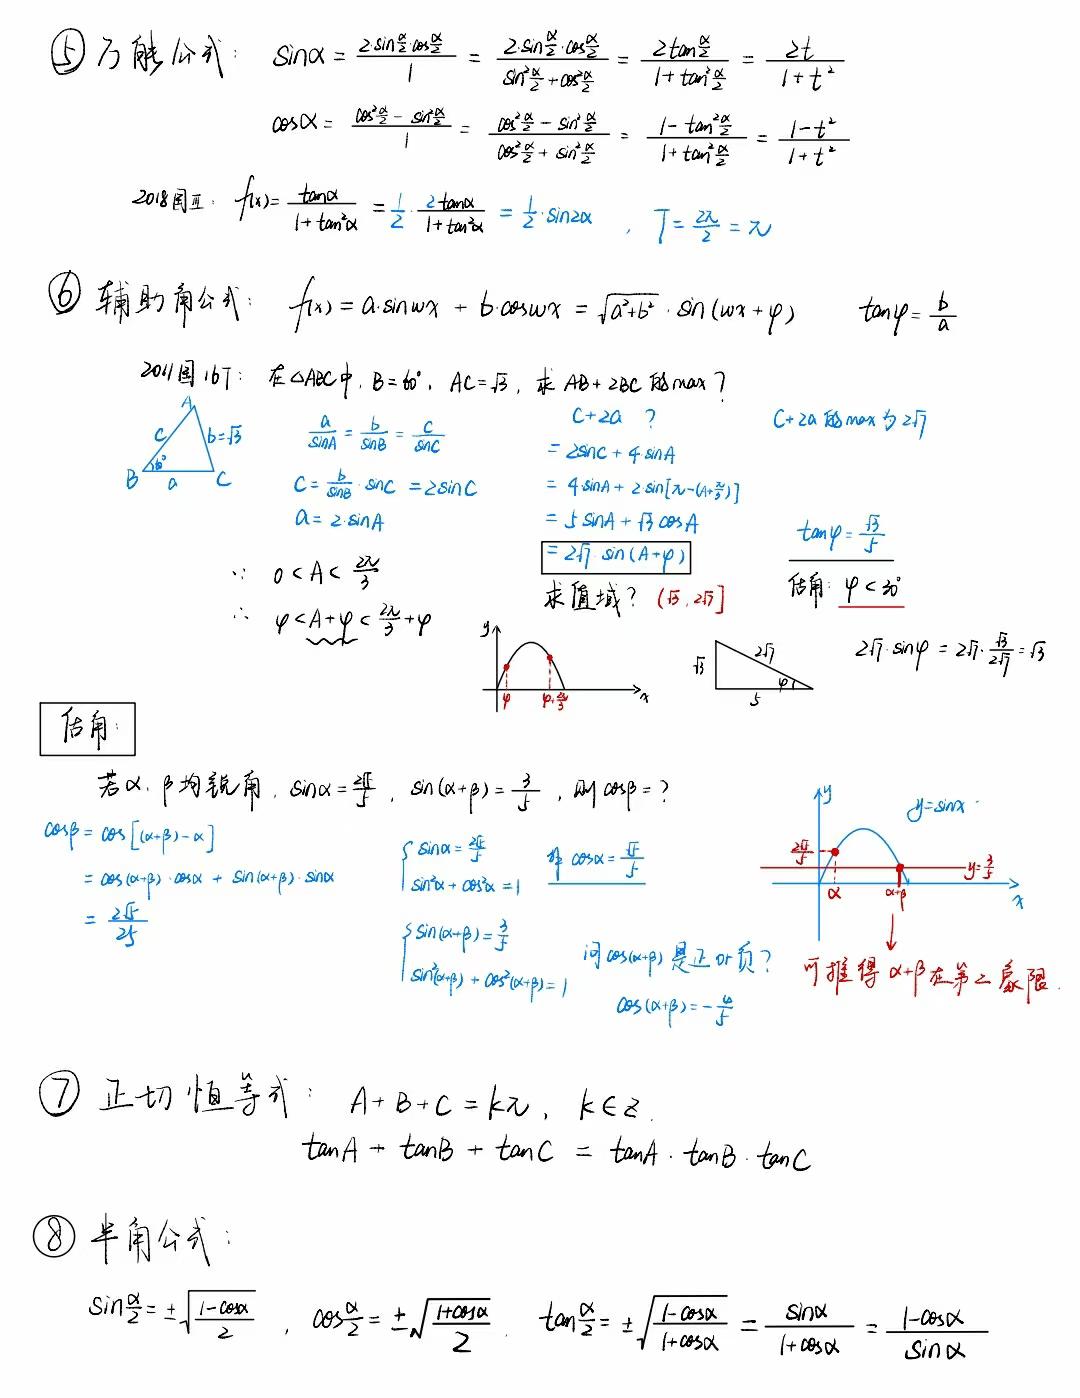 ⑤ 万能公式: sinα = 2·sin α/2·cos α/2 / 1 = 2·sin α/2·cos α/2 / (sin² α/2 + cos² α/2) = 2tan α/2 / (1+tan² α/2) = 2t / (1+t²)
cosα = (cos² α/2 − sin² α/2) / 1 = (cos² α/2 − sin² α/2) / (cos² α/2 + sin² α/2) = (1−tan² α/2) / (1+tan² α/2) = (1−t²) / (1+t²)
2018国Ⅲ: f(x) = tanα / (1+tan²α) = 1/2 · 2tanα / (1+tan²α) = 1/2 · sin2α , T = 2π/2 = π
⑥ 辅助角公式: f(x) = a·sinwx + b·coswx = √(a²+b²) · sin(wx+φ) tanφ = b/a
2011国16T: 在△ABC中, B=60°, AC=√3, 求 AB+2BC 的max?
A
c b=√3
60°
B a C
a/sinA = b/sinB = c/sinC
c = b/sinB · sinC = 2sinC
a = 2·sinA
∵ 0 < A < 2π/3
∴ φ < A+φ < 2π/3 + φ
C+2a ?
= 2sinC + 4·sinA
= 4·sinA + 2·sin[π−(A+π/3)]
= 5sinA + √3cosA
= 2√7·sin(A+φ)
求值域? (√3, 2√7]
C+2a 的max为2√7
tanφ = √3/5
估角: φ < 30°
2√7·sinφ = 2√7·√3/2√7 = √3
y
φ φ+2π/3 x
√3 2√7 φ
5
估角:
若α、β均锐角, sinα = 2√5/5, sin(α+β) = 3/5, 则cosβ = ?
cosβ = cos[(α+β)−α]
= cos(α+β)·cosα + sin(α+β)·sinα
= 2√5/25
sinα = 2√5/5
sin²α + cos²α = 1
得 cosα = √5/5
sin(α+β) = 3/5
sin²(α+β) + cos²(α+β) = 1
问cos(α+β) 是正or负?
cos(α+β) = −4/5
y y=sinx
2√5/5 y=3/5
α α+β x
可推得 α+β在第二象限.
⑦ 正切恒等式: A+B+C = kπ, k∈z.
tanA + tanB + tanC = tanA · tanB · tanC
⑧ 半角公式:
sin α/2 = ±√((1−cosα)/2) , cos α/2 = ±√((1+cosα)/2) . tan α/2 = ±√((1−cosα)/(1+cosα)) = sinα/(1+cosα) = (1−cosα)/sinα